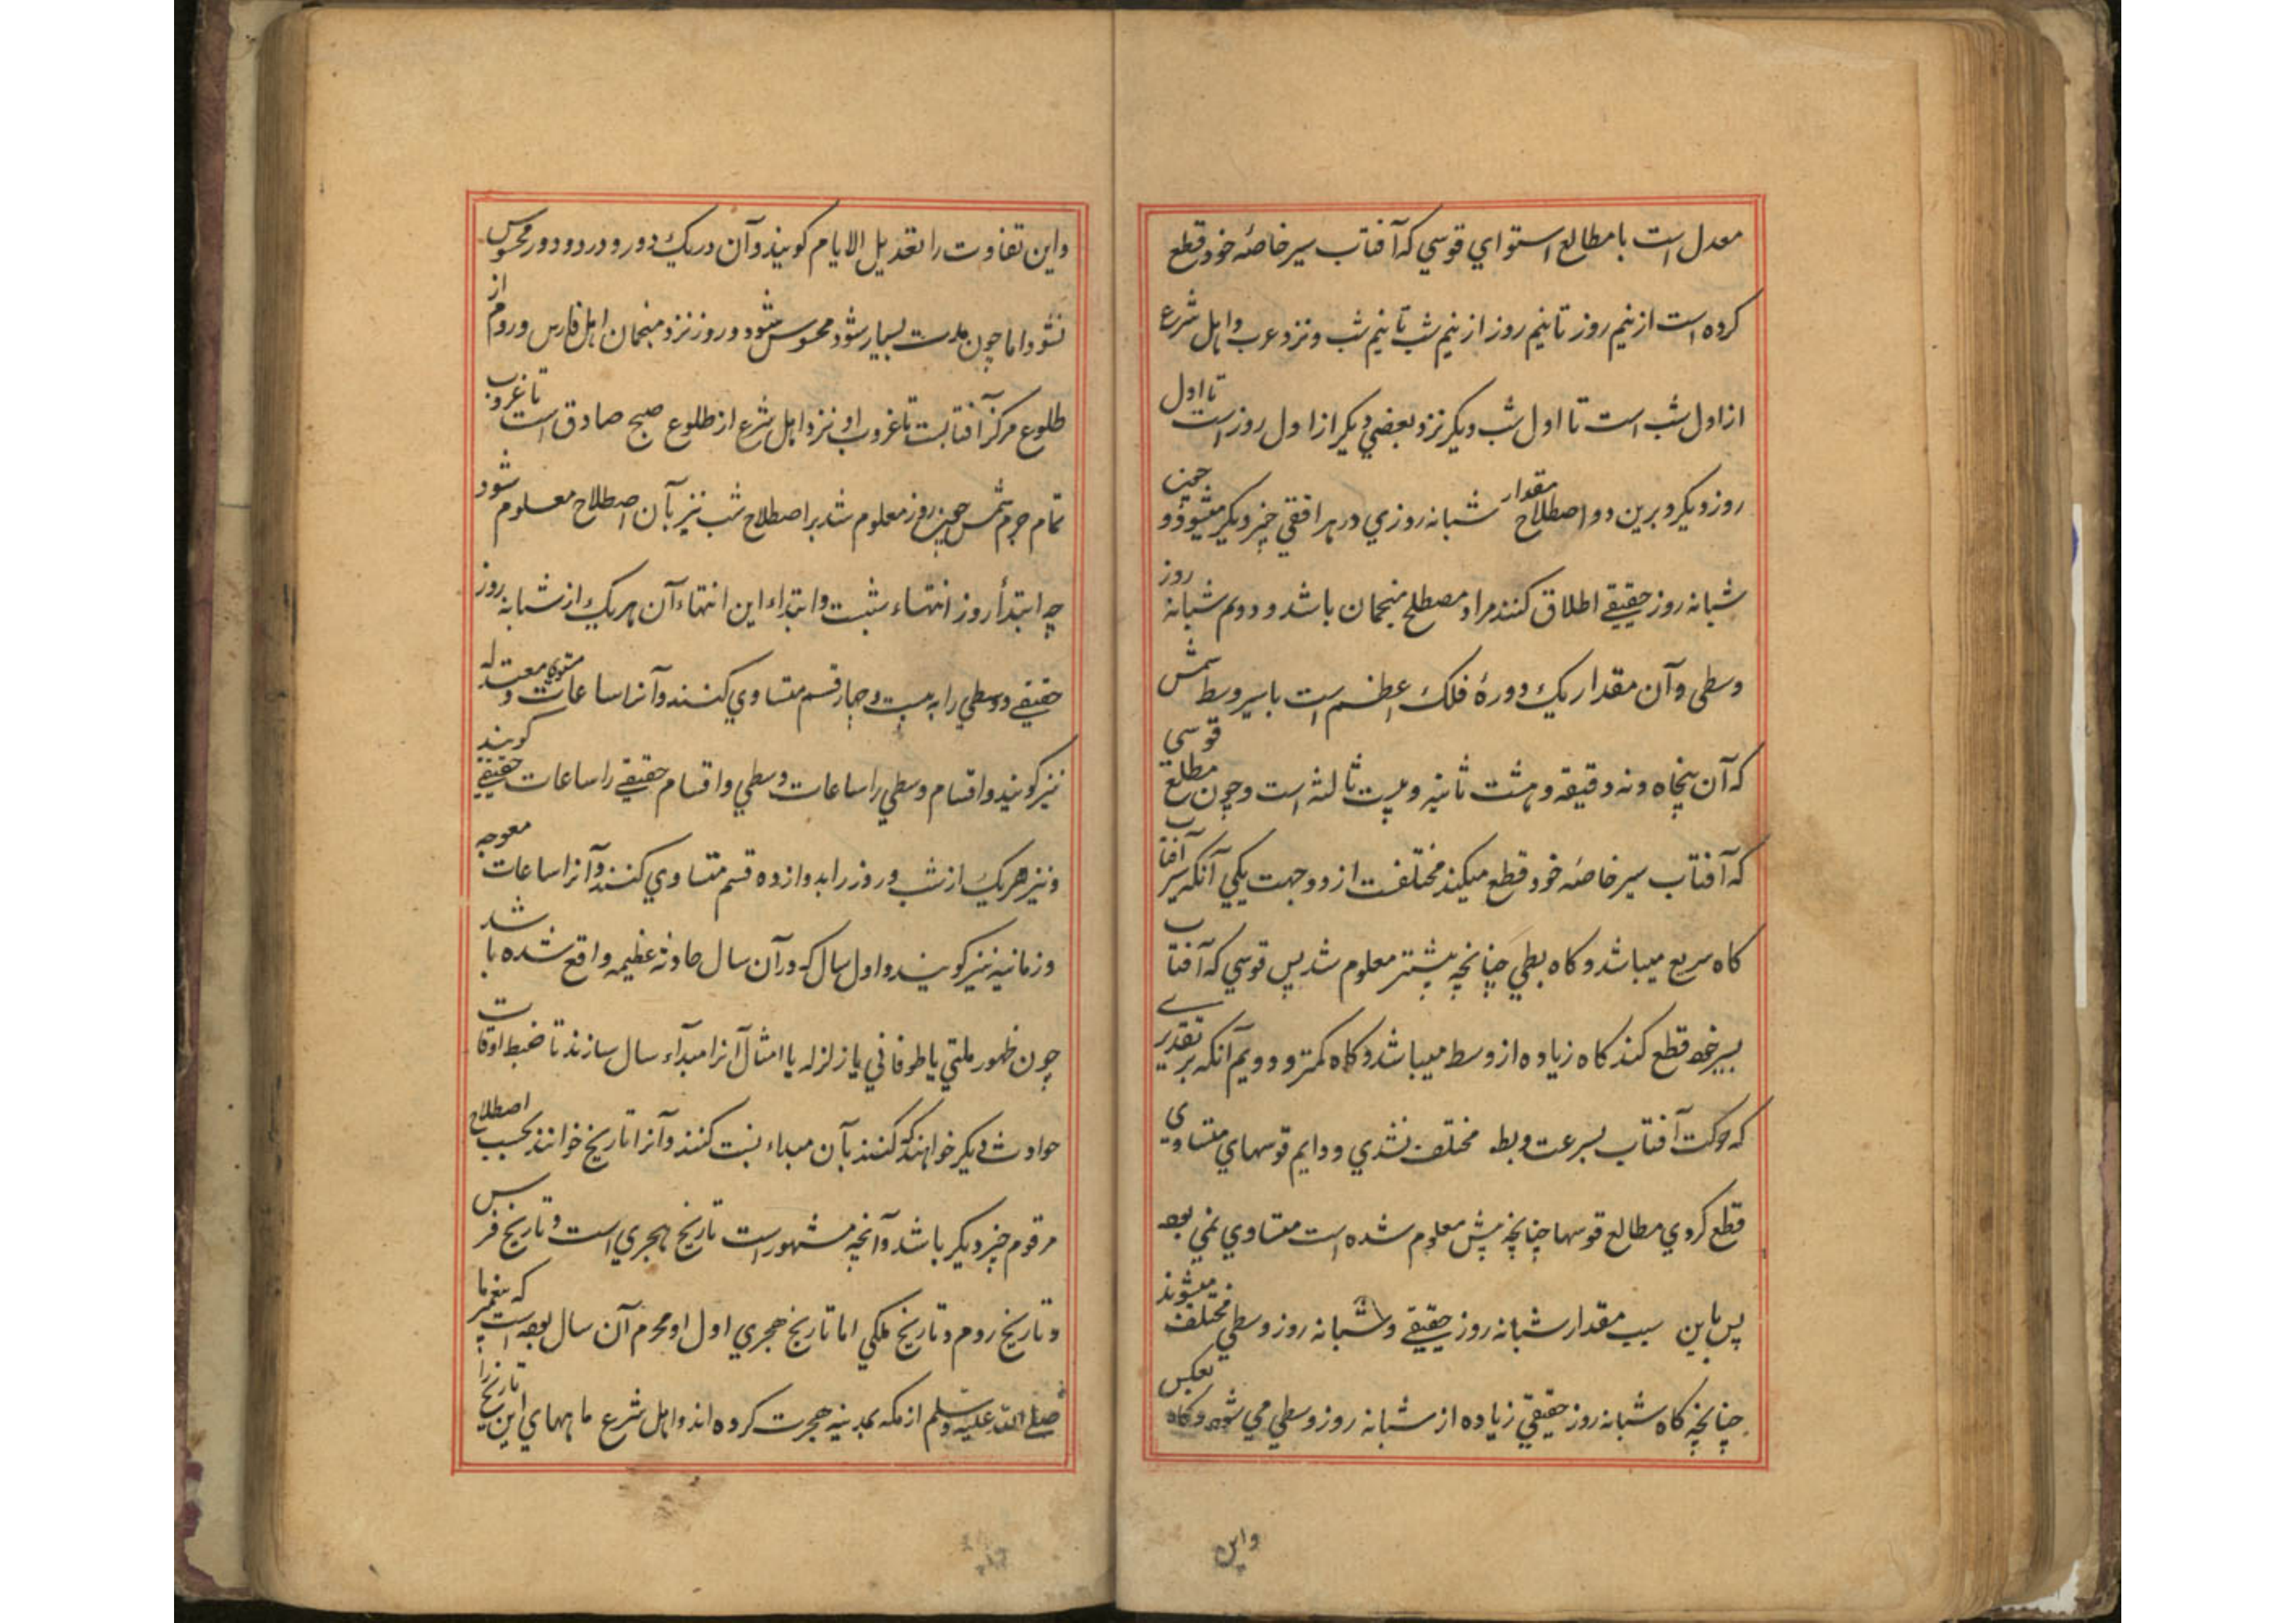 معدل است با مطالع استواي قوسي كه آفتاب بسير خاصه خود قطع
كرده است از نيم روز تا نيم روز از نيم شب تا نيم شب و نزد عرب و اهل شرع
از اول شب است تا اول شب ديكر نزد بعضي ديكر از اول روز است تا اول
روز ديكر و برين دو اصطلاح مقدار شبانه روزي در هر افقي چيز ديكر ميشود و چون
شبانه روز حقيقي اطلاق كنند مراد مصطلح منجمان باشد و دويم شبانه روز
وسطي و آن مقدار يك دورهٔ فلك اعظم است با سير وسط شمس
كه آن پنجاه و نه دقيقه و هشت ثانيه و بيست ثالثه است و چون مطلع قوسي
كه آفتاب بسير خاصه خود قطع ميكند مختلفست از دو جهت يكي آنكه سير آفتاب
كاه سريع ميباشد و كاه بطي چنانچه پيشتر معلوم شد پس قوسي كه آفتاب
بسير خود قطع كند كاه زياده از وسط ميباشد و كاه كمتر و دويم آنكه بر تقديرے
كه حركت آفتاب بسرعت و بط مختلف نشدي و دايم قوسهاي متساوي
قطع كردي مطالع قوسها چنانچه پيش معلوم شده است متساوي نمي بود
پس باين سبب مقدار شبانه روز حقيقي و شبانه روز وسطي مختلف ميشوند
چنانچه كاه شبانه روز حقيقي زياده از شبانه روز وسطي مي شود و كاه بعكس
واين
و اين تفاوت را تعديل الايام كويند و آن در يك دور و در دو دور محسوس
نشود اما چون مدت بسيار شود محسوس شود و روز نزد منجمان اهل فارس و روم از
طلوع مركز آفتابست تا غروب او نزد اهل شرع از طلوع صبح صادق است تا غروب
تمام جرم شمس چون روز معلوم شد بر اصطلاح شب نيز بآن اصطلاح معلوم شود
چه ابتدأ روز انتهاء شبست و ابتداء اين انتهاء آن هر يك از شبانه روز
حقيقي و وسطي را به بيست و چهار قسم متساوي كنند و آنرا ساعات مستوي و معتدله
نيز كويند و اقسام وسطي را ساعات وسطي و اقسام حقيقي را ساعات حقيقي كويند
و نيز هر يك از شب و روز را بدوازده قسم متساوي كنند و آنرا ساعات معوجه
و زمانيه نيز كويند و اول سال كه در آن سال حادثه عظيمه واقع شده باشد
چون ظهور ملتي يا طوفاني يا زلزله يا امثال آنرا مبدآء سال سازند تا ضبط اوقات
حوادث ديكر خواهند كه كنند بآن مبداء نسبت كنند و آنرا تاريخ خوانند بحسب اصطلاح
مرقوم چيز ديكر باشد و آنچه مشهور است تاريخ هجري است و تاريخ فرس
و تاريخ روم و تاريخ ملكي اما تاريخ هجري اول او محرم آن سال بود است كه پيغمبر ما
صلى الله عليه وسلم از مكه بمدينه هجرت كرده اند و اهل شرع ماههاي اين تاريخ را